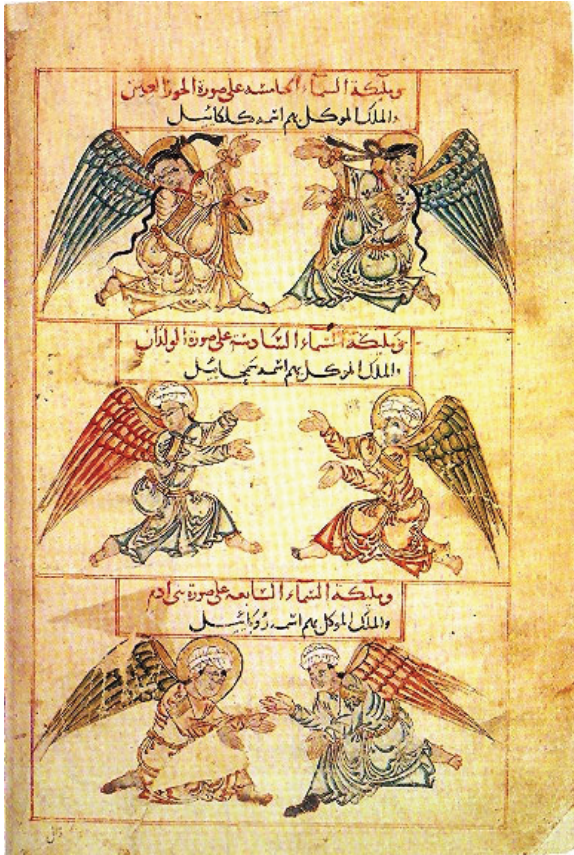 وملىكة السماء الخامسه على صورة الحور العين
والملك الموكل بهم اسمه كلكائيل
وملىكة السماء السادسة على صورة الولدان
والملك الموكل بهم اسمه سمخائيل
وملىكة السماء السابعه على صورة بنى ادم
والملك الموكل بهم اسمه روكائيل